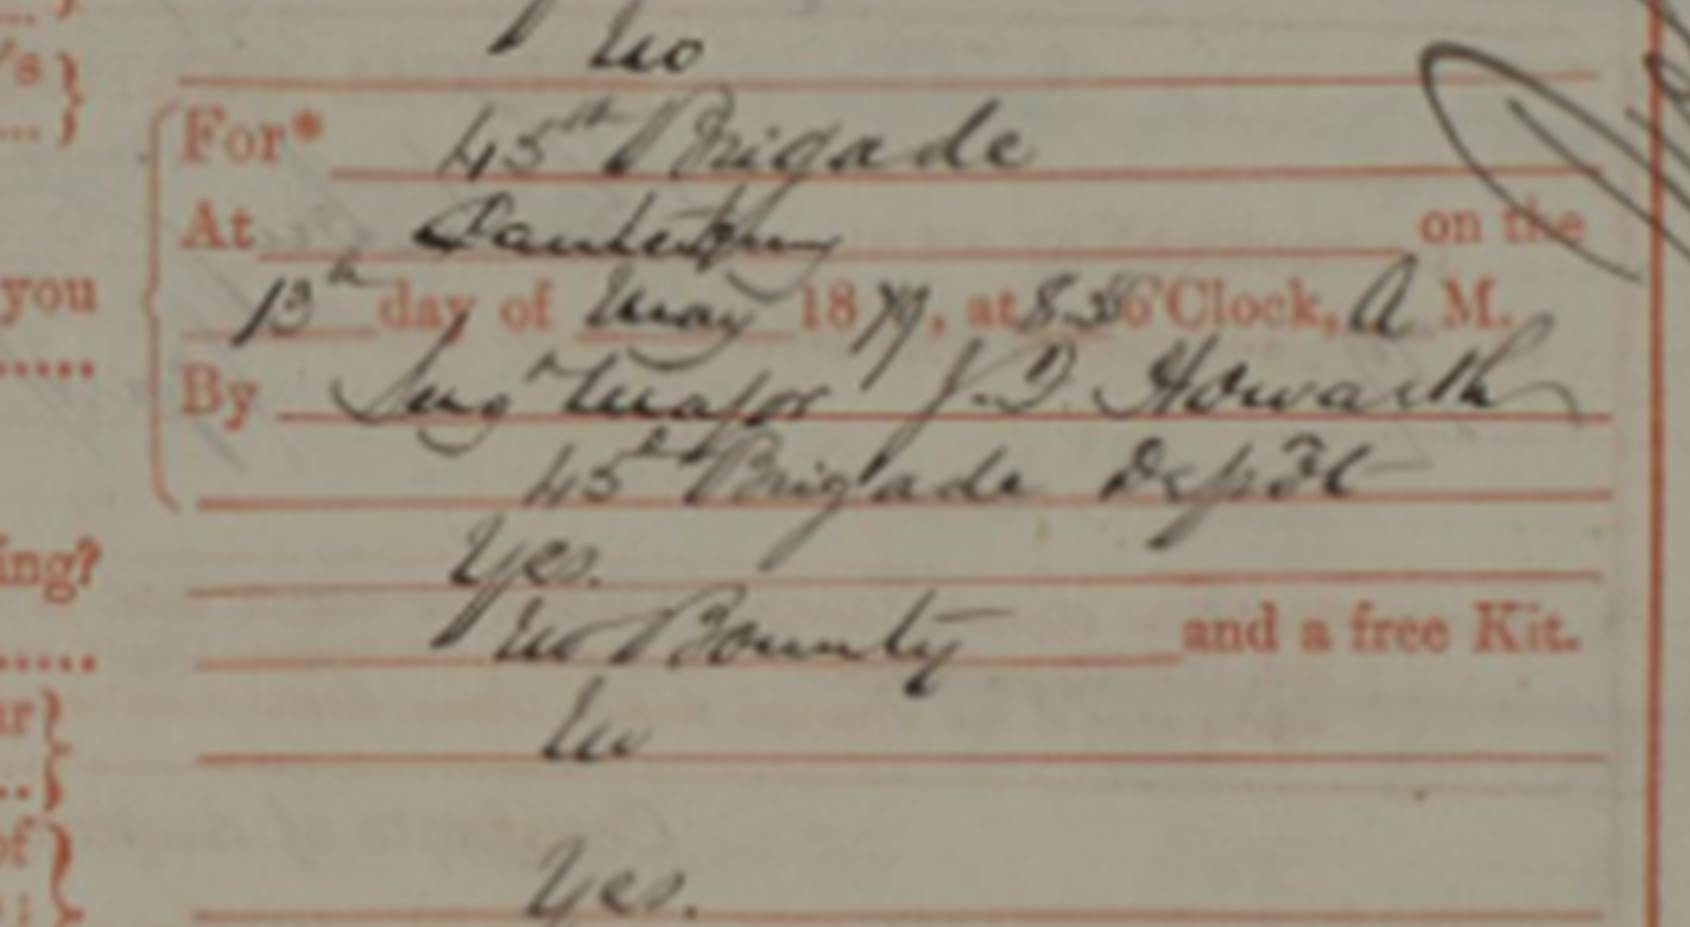 No
's }
... }
For* 45th Brigade
At Canterbury on the
you 13th day of May 1879, at 8.30 o'Clock, A M.
.....
By Serg Major J. D. Howarth
45th Brigade Depôt
ing? Yes.
..... No Bounty and a free Kit.
ur } No
.. }
of } Yes.
: }